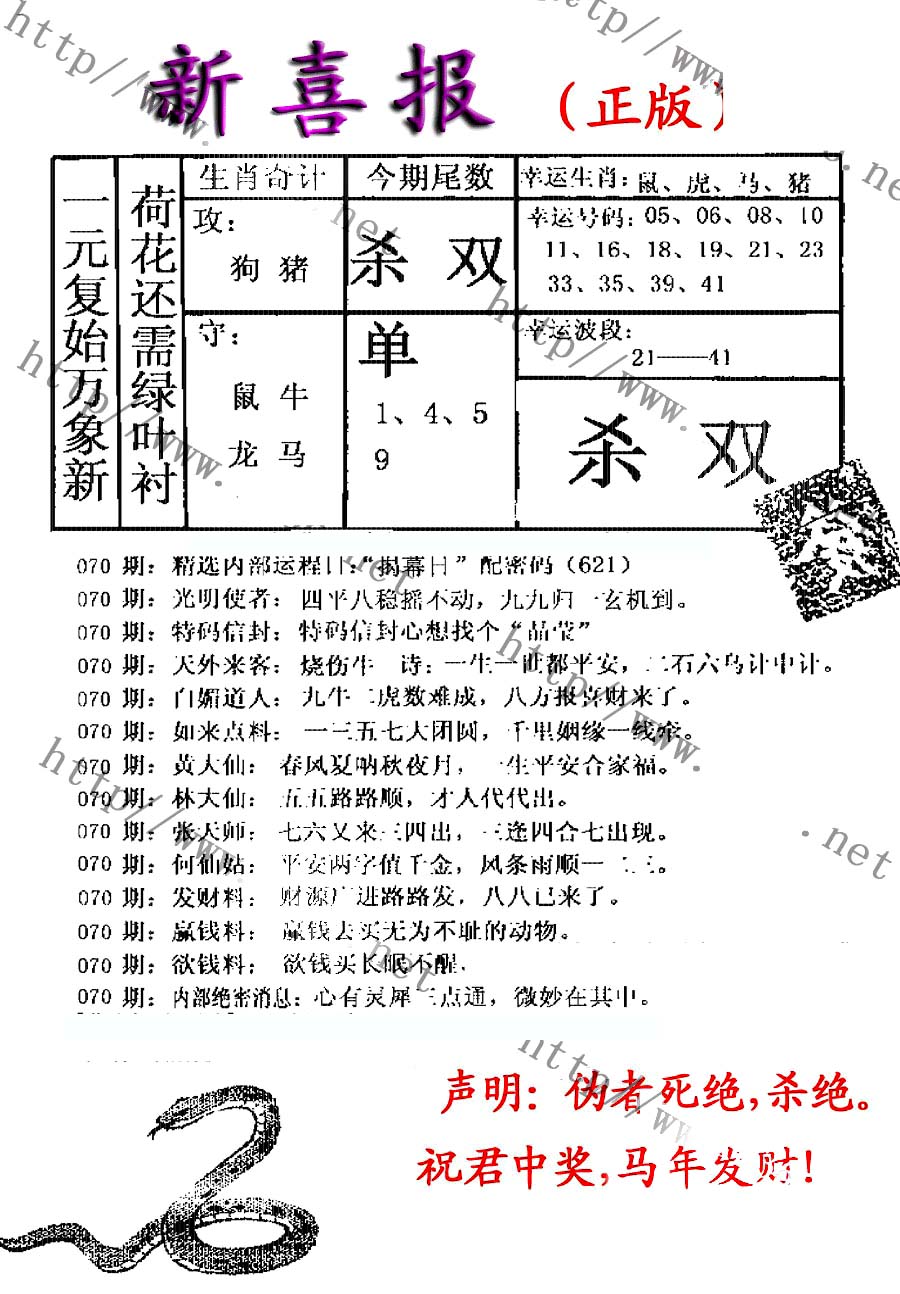 新喜报（正版）
一元复始万象新
荷花还需绿叶衬
生肖奇计
攻：
狗 猪
守：
鼠 牛
龙 马
今期尾数
杀 双
单
1、4、5
9
幸运生肖：鼠、虎、马、猪
幸运号码：05、06、08、10
11、16、18、19、21、23
33、35、39、41
幸运波段：
21——41
杀 双
070 期：精选内部运程日：“揭幕日”配密码（621）
070 期：光明使者：四平八稳摇不动，九九归一玄机到。
070 期：特码信封：特码信封心想找个“晶莹”
070 期：天外来客：烧伤牛 诗：一生一世都平安，二石六鸟计中计。
070 期：白媚道人：九牛二虎数难成，八方报喜财来了。
070 期：如来点料：一三五七大团圆，千里姻缘一线牵。
070 期：黄大仙：春风夏呐秋夜月，一生平安合家福。
070 期：林大仙：五五路路顺，才人代代出。
070 期：张天师：七六又来三四出，三逢四合七出现。
070 期：何仙姑：平安两字值千金，风条雨顺一二三。
070 期：发财料：财源广进路路发，八八已来了。
070 期：赢钱料：赢钱去买无为不耻的动物。
070 期：欲钱料：欲钱买长眠不醒.
070 期：内部绝密消息：心有灵犀三点通，微妙在其中。
声明：伪者死绝，杀绝。
祝君中奖，马年发财！
http//www.
http//www.
.net
.net
http//www.
http//www.
.net
http//www.
http//www.
.net
.net
http//www.